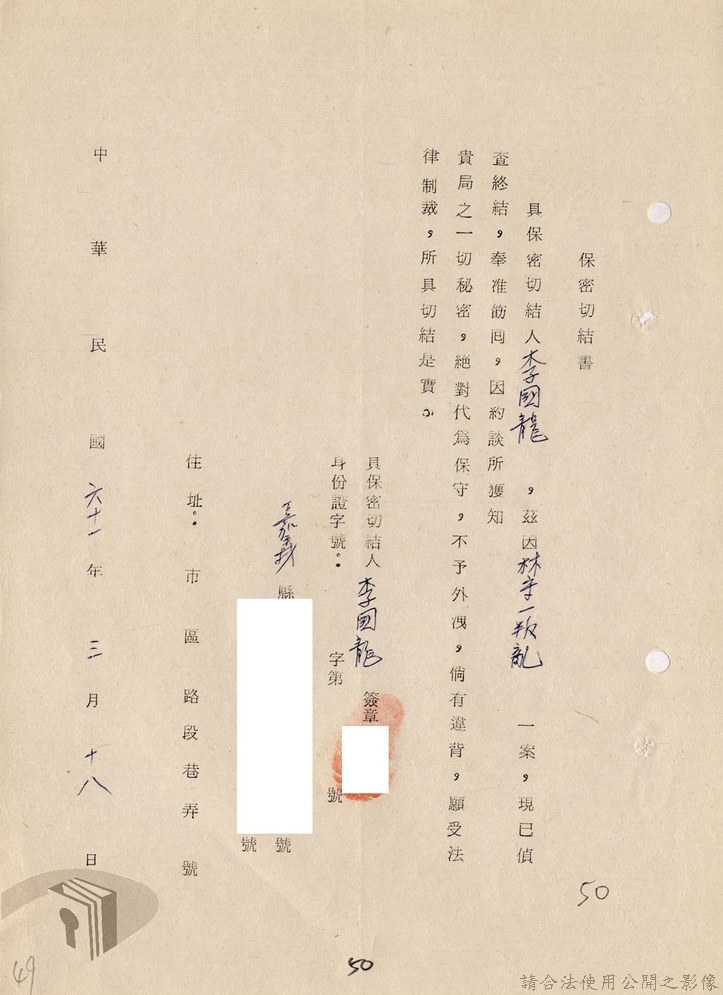 保密切結書
具保密切結人李國龍,茲因林守一叛亂一案,現已偵
查終結,奉准飭回,因約談所獲知
貴局之一切秘密,絕對代為保守,不予外洩,倘有違背,願受法
律制裁,所具切結是實。
具保密切結人李國龍簽章
身份證字號:字第號
嘉義縣號
號
住址:市區路段巷弄號
中華民國六十一年三月十八日
50
50
49
請合法使用公開之影像